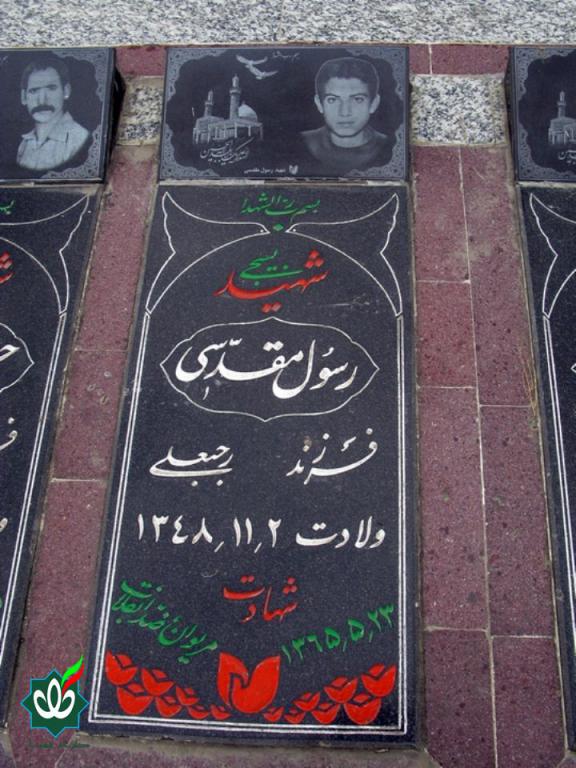 شهید رسول مقدسی
بسم رب الشهدا
شهید
بسیجی
رسول مقدسی
فرزند رجبعلی
ولادت ۱۳۴۸٫۱۱٫۲
شهادت
۱۳۶۵٫۵٫۲۳
مریوان ضد انقلاب